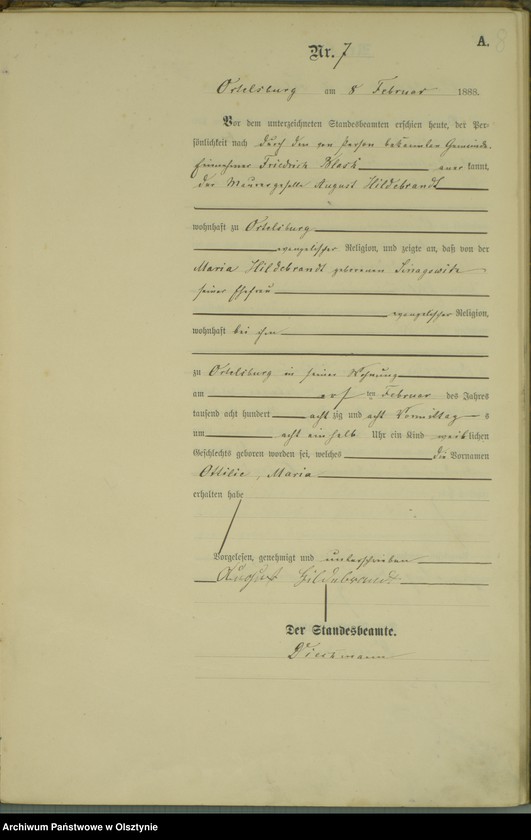 A.
Nr. 7
Ortelsburg am 8 Februar 1888.
Vor dem unterzeichneten Standesbeamten erschien heute, der Per-
sönlichkeit nach durch den von Person bekannten Gemeinde-
Einnehmer Friedrich aner kannt,
der Maurergeselle August Hildebrandt
wohnhaft zu Ortelsburg
evangelischer Religion, und zeigte an, daß von der
Maria Hildebrandt geborenen
seiner Ehefrau
evangelischer Religion,
wohnhaft bei ihm
zu Ortelsburg in seiner Wohnung
am ten Februar des Jahres
tausend acht hundert acht zig und acht Vormittags
um acht ein halb Uhr ein Kind weiblichen
Geschlechts geboren worden sei, welches die Vornamen
Ottilie, Maria
erhalten habe
Vorgelesen, genehmigt und unterschrieben
August Hildebrandt
Der Standesbeamte.
Archiwum Państwowe w Olsztynie